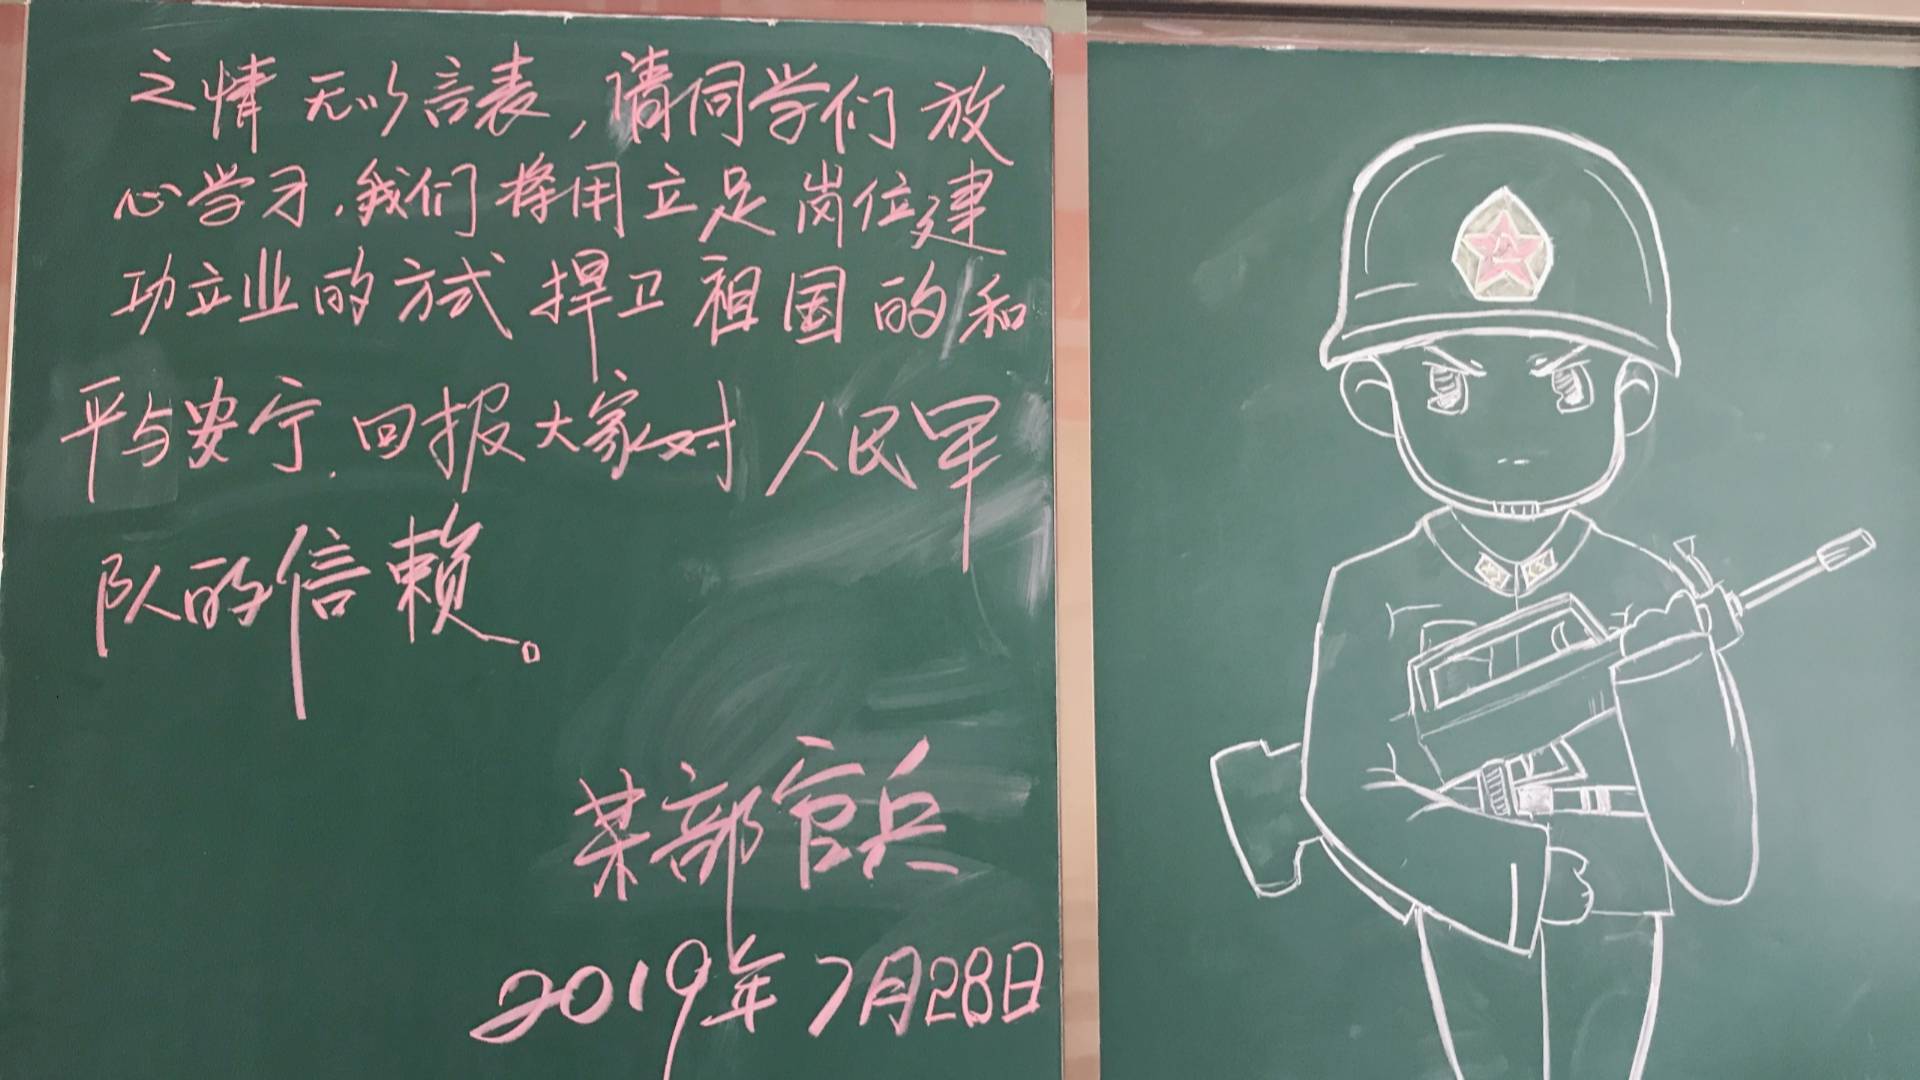 之情无以言表，请同学们放
心学习，我们将用立足岗位建
功立业的方式捍卫祖国的和
平与安宁，回报大家对人民军
队的信赖。
某部官兵
2019年7月28日
八一